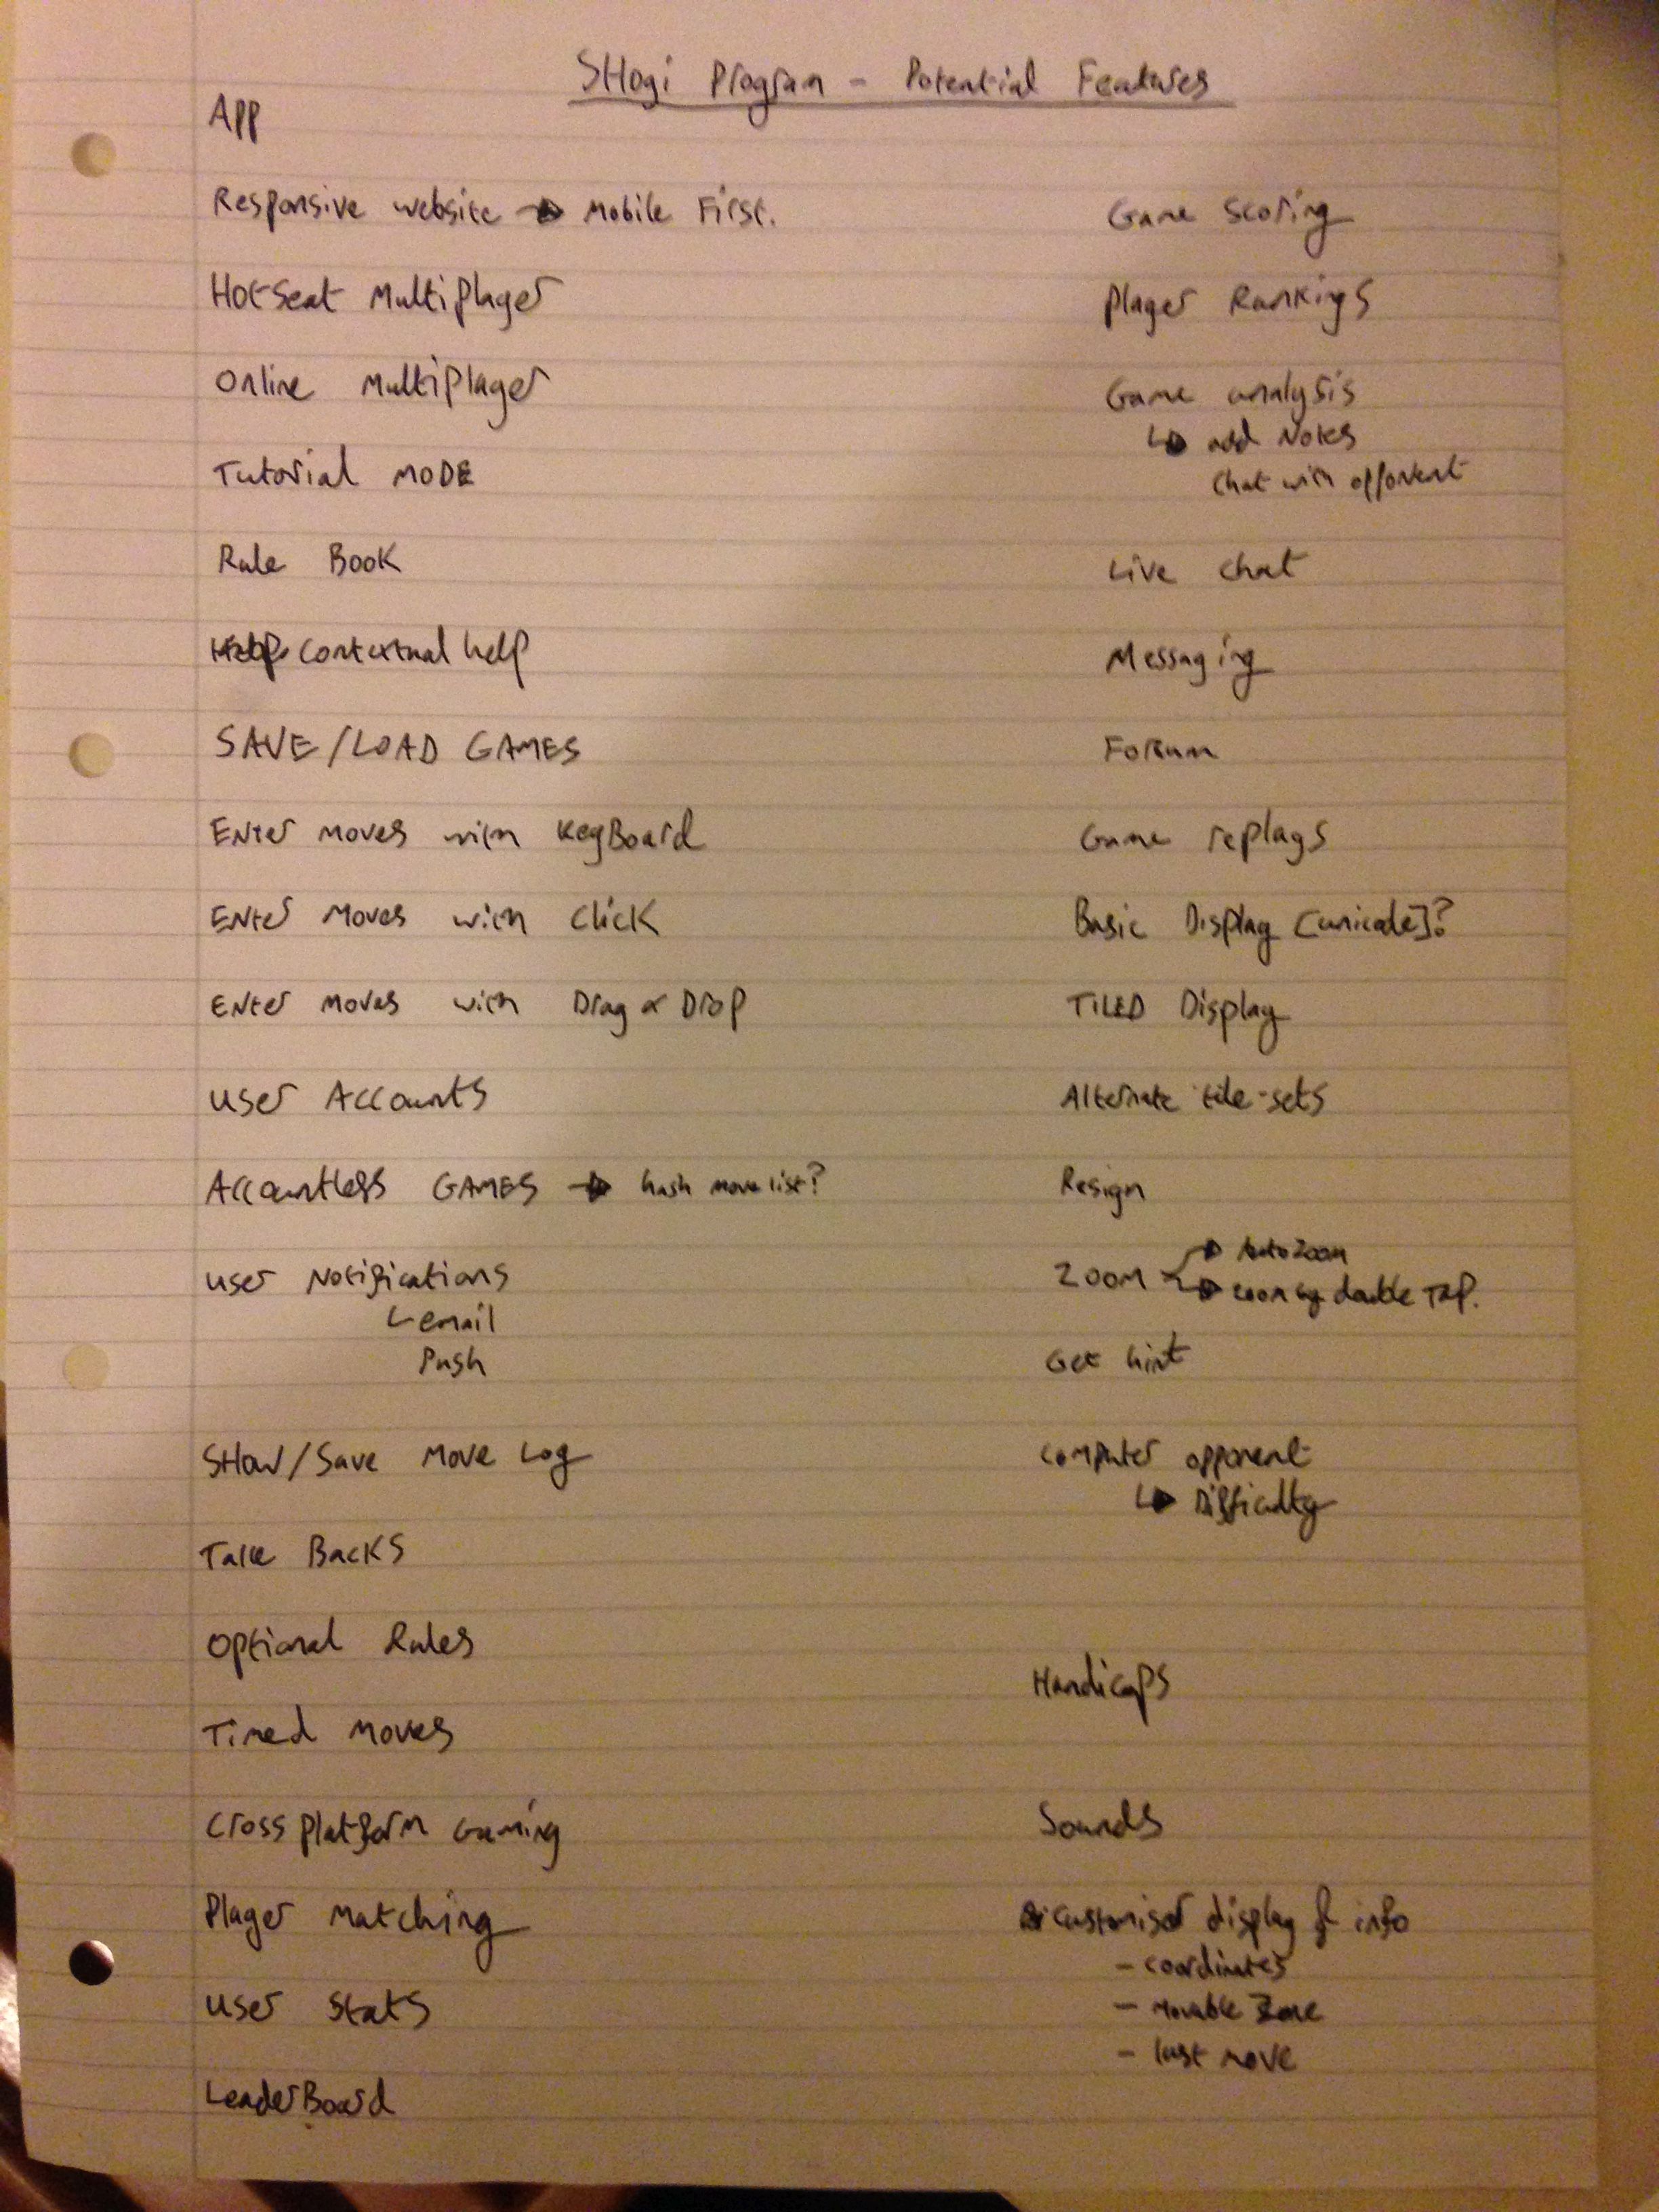 SHogi Program - Potential Features
App
Responsive website → Mobile First.
HotSeat Multiplayer
Online Multiplayer
Tutorial MODE
Rule Book
Help Contextual help
SAVE/LOAD GAMES
ENter moves with KeyBoard
ENter Moves with Click
ENter moves with Drag & Drop
User Accounts
Accountless GAMES → hash move list?
User Notifications
email
Push
SHow/Save Move Log
Take Backs
Optional Rules
Timed Moves
Cross platform Gaming
Player Matching
User Stats
LeaderBoard
Game Scoring
Player Rankings
Game analysis
↳ add Notes
Chat with opponent
Live chat
Messaging
Forum
Game replays
Basic Display [unicode]?
TILED Display
Alternate tile-sets
Resign
ZOOM → AutoZoom
→ zoom by double TAP.
Get hint
Computer opponent
↳ Difficulty
Handicaps
Sounds
Customised display of info
- coordinates
- Movable Zone
- last move